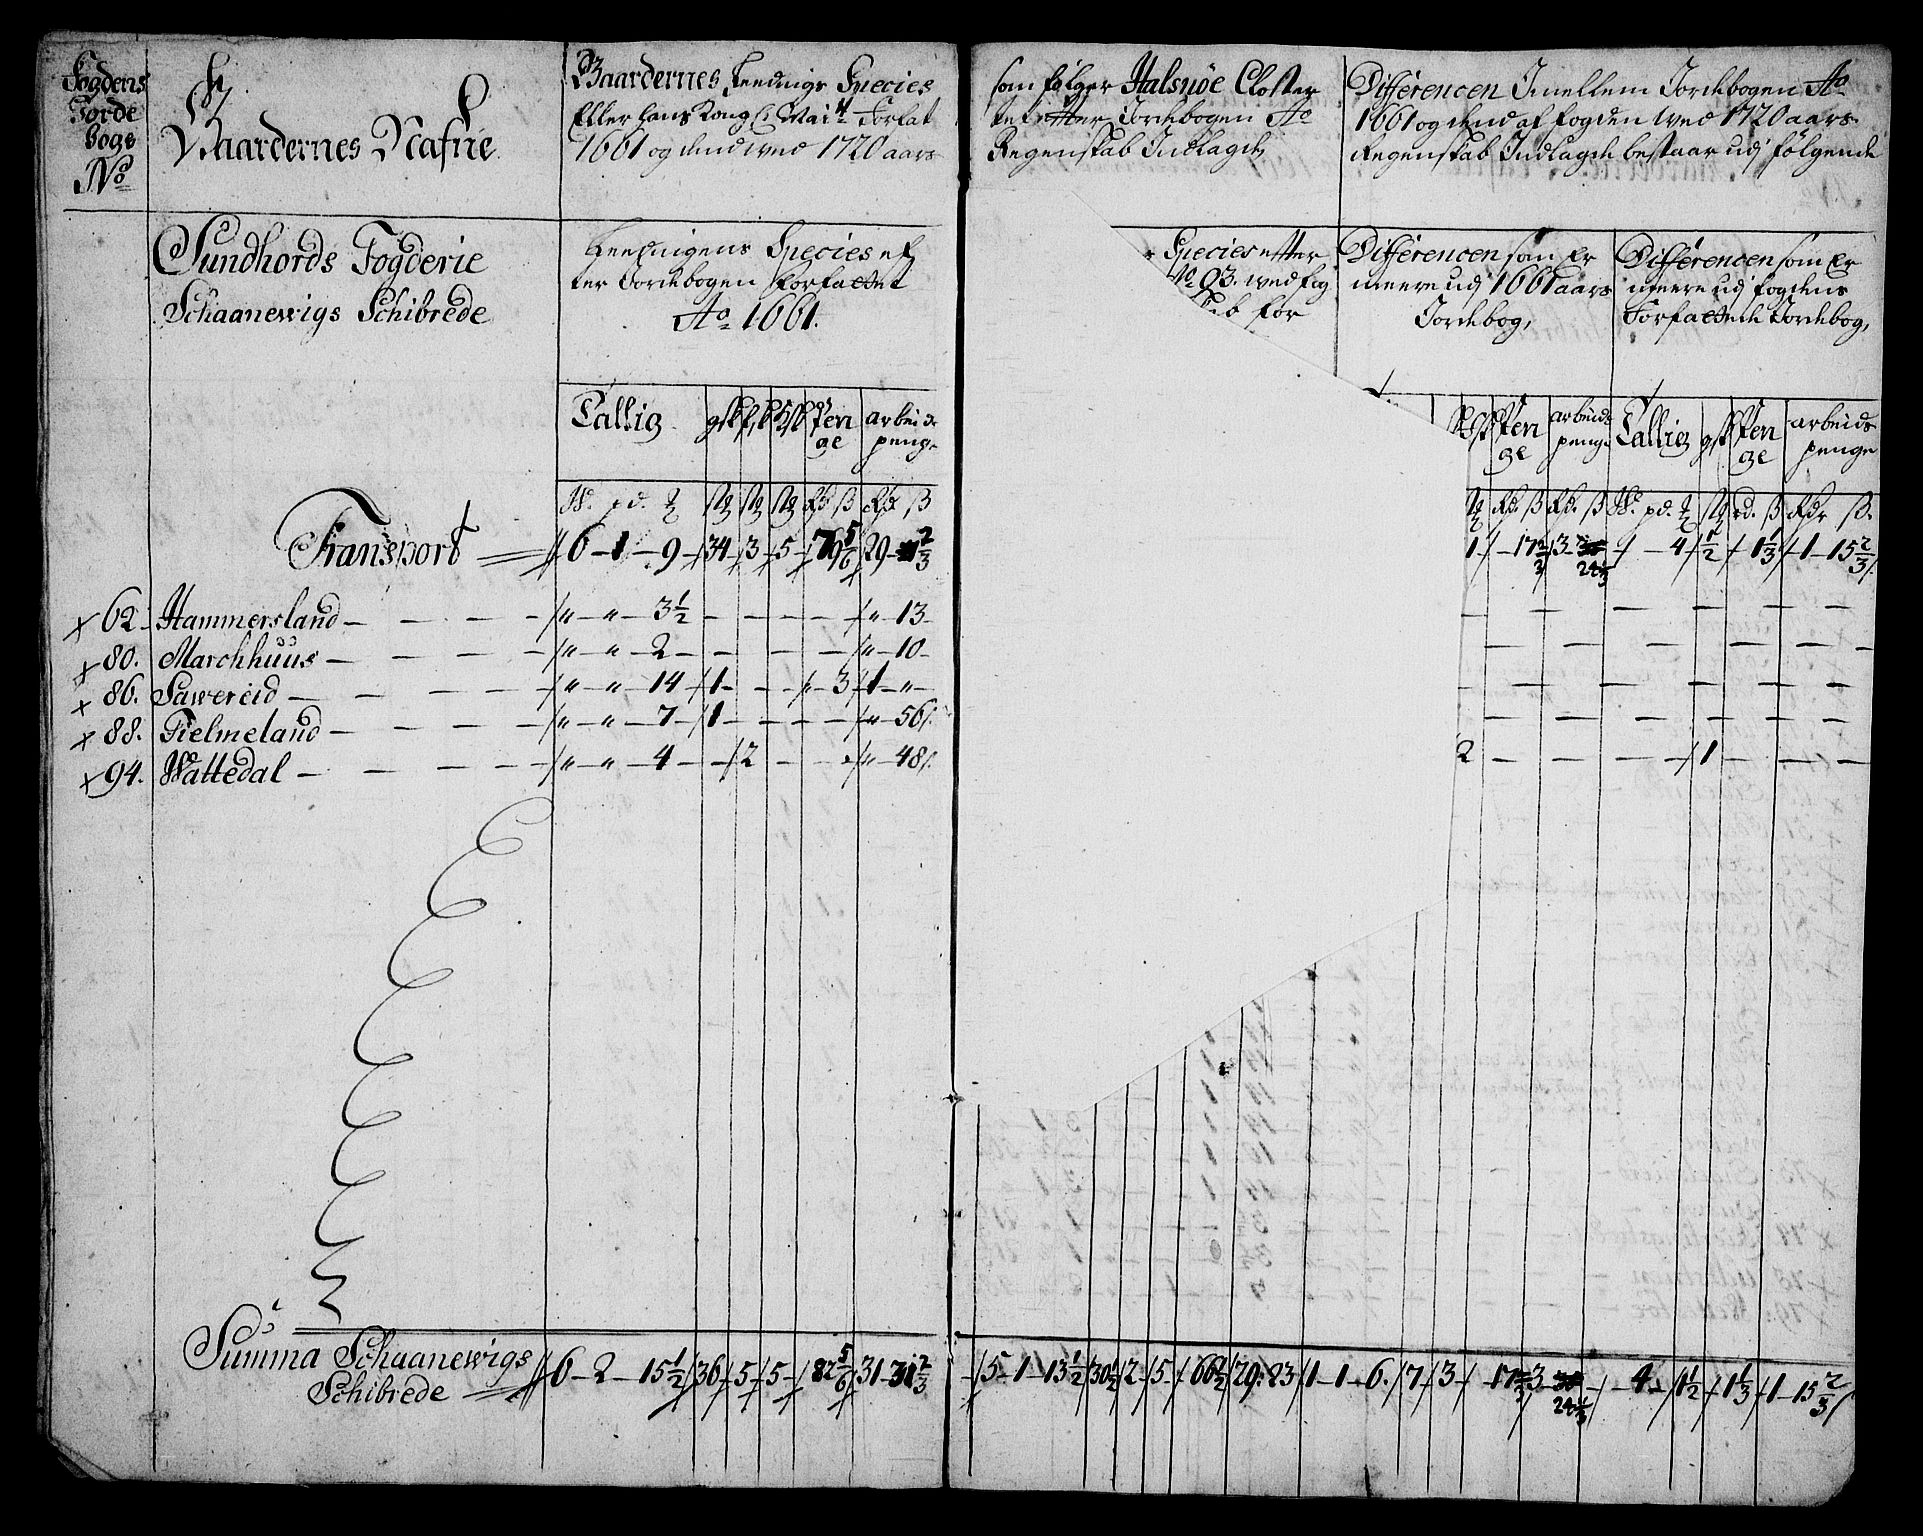 Fogdens
Jorde
bogs
No
Gaardernes Nafne
Gaardernes Leednigs Species
Eller hans Kongl Mait Forfat
1661 og dend wed 1720 aars
som følger Halsnøe Closter
ter Jordebogen Ao
Regenskab Indlagde
Differencen Imellem Jordebogen Ao
1661 og dend af fogden wed 1720 aars
Regenskab Indlagde bestaar udj følgende
Sundhords Fogderie
Schaanewigs Schibrede
Leednigens Species ef
ter Jordebogen forfattet
Ao 1661.
Species etter
No 93. wed fog
for
Differencen som Er
meere udj 1661 aars
Jordebog,
Differencen som Er
meere udj fogdens
Forfattede Jordebog,
Tallig
Pen
ge
arbeids
penge
Pen
ge
arbeids
penge
Tallig
Pen
ge
arbeids
penge
W. pd.
Transport 6 - 1 - 9 - 34 - 3 - 5 - 79 5/6 29 - 2/3
1 - 17 2/3 3 - 24 1/3 - 4 1/2 - 1 1/3 1 - 15 2/3
62. Hammersland - " - " - 3 1/2 - " - 13
80. Marchhuus - " - " - 2 - " - 10
86. Sawereid - " - " - 14 - 1 - 3 - 1 - "
88. Fielmeland - " - " - 7 - 1 - " - 56
94. Wattedal - " - " - 4 - 2 - " - 48 2 - 1
Summa Schaanewigs
Schibrede 6 - 2 - 15 1/2 36 - 5 - 5 - 82 5/6 31 - 31 2/3
5 - 1 - 13 1/2 30 1/2 2 - 5 - 66 1/2 29 - 23 1 - 1 - 6. 7 - 3 - 17 2/3 3 - 24 1/3 - 4 - 1 1/2 - 1 1/3 1 - 15 2/3